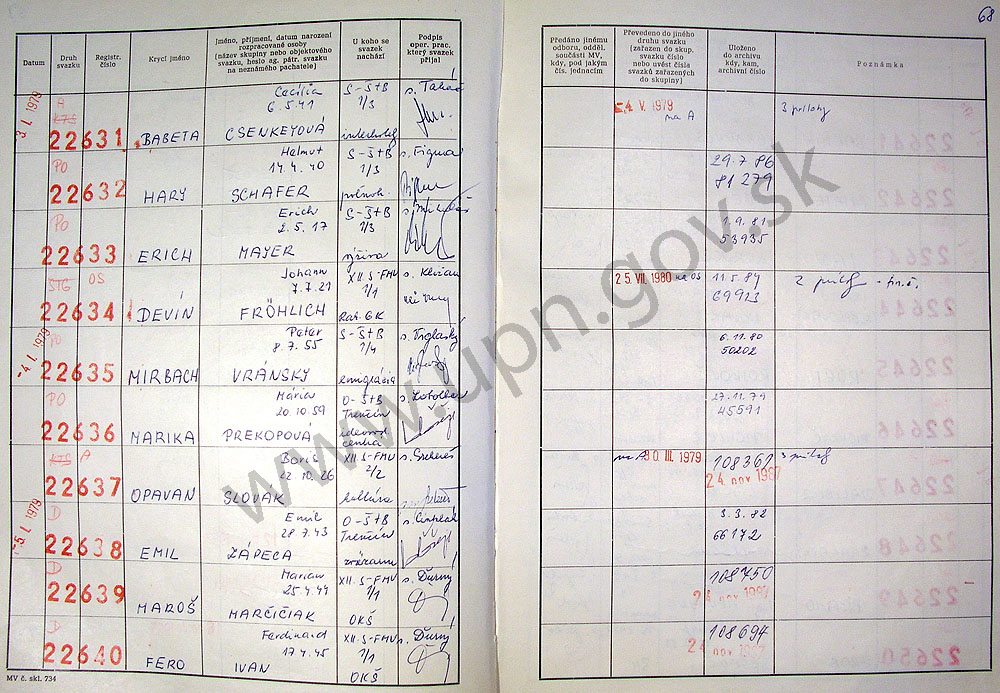 68
Datum
Druh svazku
Registr. číslo
Krycí jméno
Jméno, příjmení, datum narození
rozpracované osoby
(název skupiny nebo objektového
svazku, heslo ag. pátr. svazku
na neznámého pachatele)
U koho se
svazek
nachází
Podpis
oper. prac.
který svazek
přijal
Předáno jinému
odboru, odděl.
součásti MV,
kdy, pod jakým
čís. jednacím
Převedeno do jiného
druhu svazku
(zařazen do skup.
svazku číslo
nebo uvést čísla
svazků zařazených
do skupiny)
Uloženo
do archivu
kdy, kam,
archivní číslo
Poznámka
3 I. 1979
A
KTS
22631
BABETA
Cecília
6.5.41
CSENKEYOVÁ
S-ŠtB
1/3
4 V. 1979
na A
3 prílohy
PO
22632
HARY
Helmut
14.4.40
SCHAFER
S-ŠtB
1/3
s. Figura
29.7.86
81279
PO
22633
ERICH
Erich
2.5.17
MAYER
S-ŠtB
1/3
1.9.81
53935
STG OS
22634
DEVÍN
Johann
7.7.21
FRÖHLICH
XII. S-FMV
1/1
Rak. GK
25. VII. 1980 na OS
11.5.84
69913
-4 I. 1979
PO
22635
MIRBACH
Peter
8.7.55
VRÁNSKY
S-ŠtB
1/4
emigrácia
6.11.80
50202
PO
22636
MARIKA
Mária
20.10.59
PREKOPOVÁ
O-ŠtB
Trenčín
centra
27.11.79
45591
KTS A
22637
OPAVAN
Boris
12.10.26
SLOVAK
XII. S-FMV
2/2
kultúra
na A 30. III. 1979
108361
24 nov 1987
-5 I. 1979
D
22638
EMIL
Emil
28.7.43
ZÁPECA
O-ŠtB
Trenčín
3.3.82
66172
D
22639
MAROŠ
Marian
25.4.44
MARČIČIAK
XII. S-FMV
1/1
OKŠ
s. Ďurný
108750
24 nov 1987
D
22640
FERO
Ferdinand
17.4.45
IVAN
XII. S-FMV
1/1
OKŠ
s. Ďurný
108694
24 nov 1987
MV č. skl. 734
www.upn.gov.sk